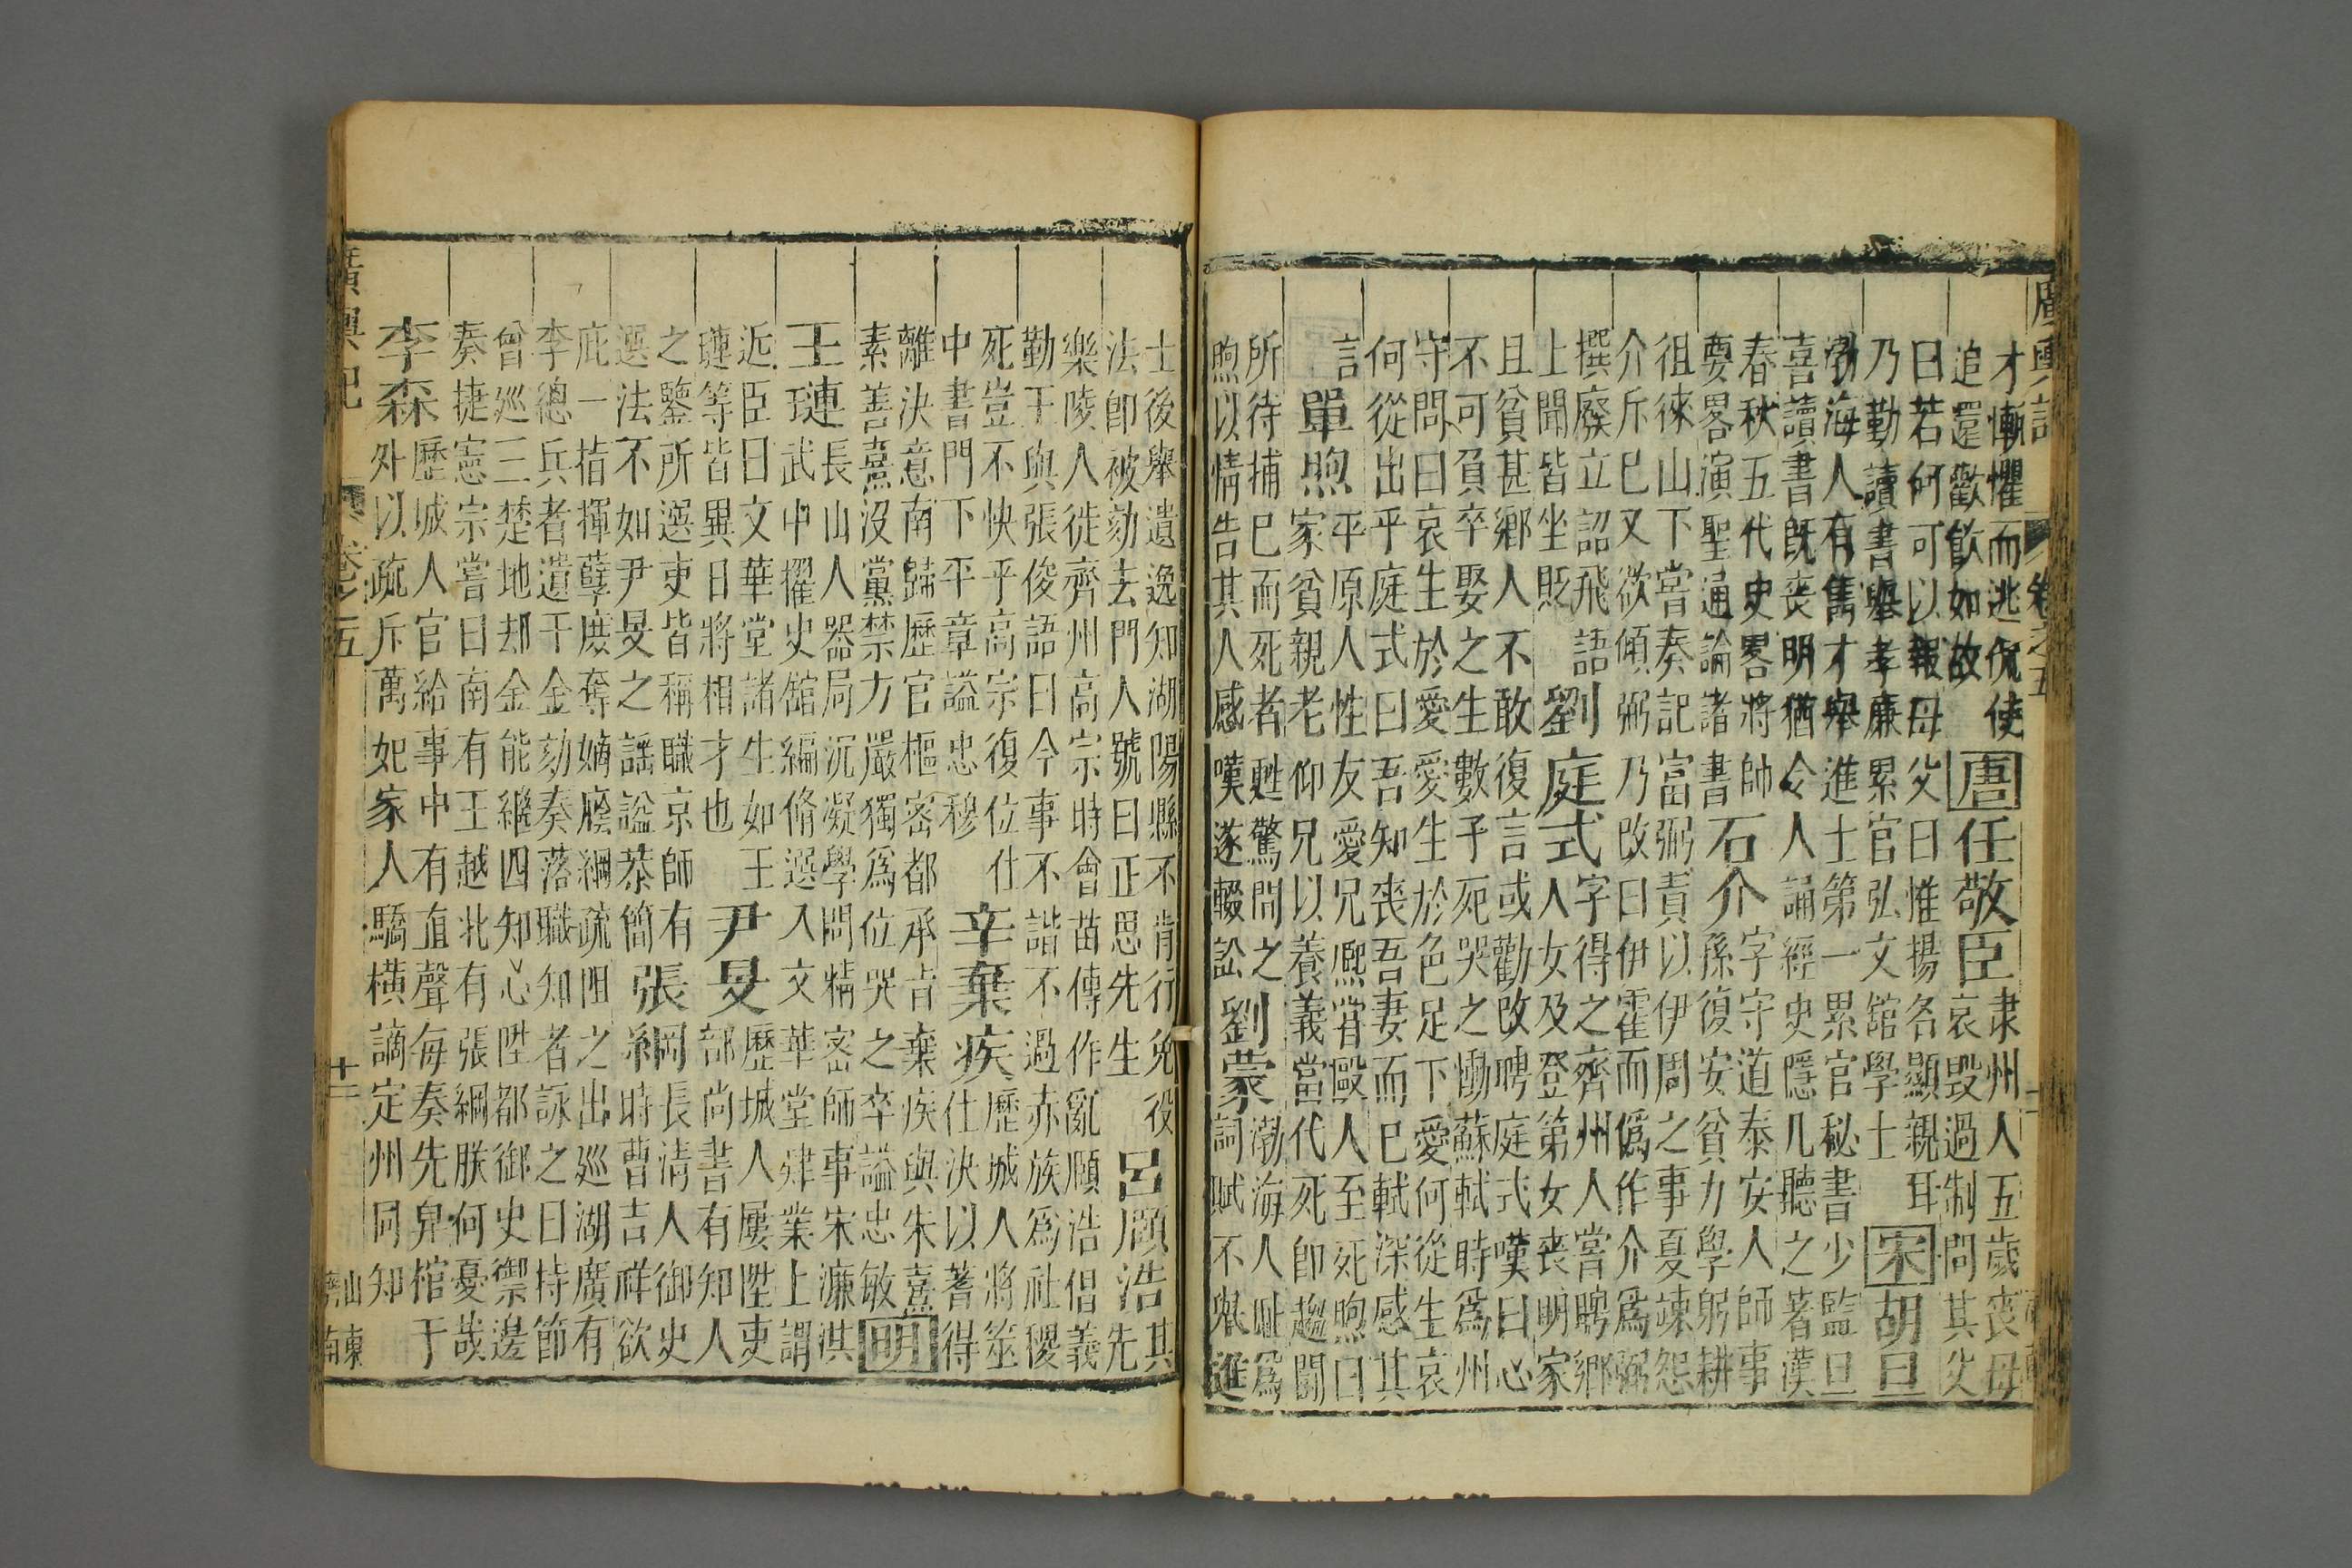 廣輿記 卷之五
才慚懼而逃仇使
追還歡飲如故
唐任敬臣
隶州人五歲喪母
哀毀過制問其父
曰若何可以報母父曰惟揚名顯親耳
乃勤讀書舉孝廉累官弘文舘學士
宋胡旦
渤海人有雋才舉進士第一累官秘書少監旦
喜讀書既喪明猶令人誦經史隱几聽之著漢
春秋五代史畧將帥
要畧演聖通論諸書
石介
字守道泰安人師事
孫復安貧力學躬耕
徂徠山下嘗奏記富弼責以伊周之事夏竦怨
介斥巳又欲傾弼乃改曰伊霍而偽作介爲弼
撰廢立詔飛語
上聞皆坐貶
劉庭式
字得之齊州人嘗聘鄉
人女及登第女喪明家
且貧甚鄉人不敢復言或勸改聘庭式嘆曰心
不可負卒娶之生數子死哭之慟蘇軾時爲州
守問曰哀生於愛愛生於色足下愛何從生哀
何從出乎庭式曰吾知喪吾妻而巳軾深感其
言
單煦
平原人性友愛兄熈嘗毆人至死煦曰
家貧親老仰兄以養義當代死即趨鬬
所待捕巳而死者甦驚問之
煦以情告其人感嘆遂輟訟
劉蒙
渤海人耻爲
詞賦不舉進
士後舉遺逸知湖陽縣不肯行免役
法即被劾去門人號曰正思先生
呂頤浩
其
先
樂陵人徙齊州高宗時會苗傅作亂頤浩倡義
勤王與張俊語曰今事不諧不過赤族爲社稷
死豈不快乎高宗復位仕
中書門下平章謚忠穆
辛棄疾
歷城人將筮
仕決以蓍得
離決意南歸歷官樞密都承旨棄疾與朱熹
素善熹沒黨禁方嚴獨爲位哭之卒謚忠敏
明
王璉
長山人器局沉凝學問精密師事宋濂淇
武中擢史舘編脩選入文華堂肄業上謂
近臣曰文華堂諸生如王
璉等皆異日將相才也
尹旻
歷城人屢陞吏
部尚書有知人
之鑒所選吏皆稱職京師有
選法不如尹旻之謡謚恭簡
張綱
長清人御史
時曹吉祥欲
庇一指揮孽庶奪嫡廕綱疏阻之出廵湖廣有
李總兵者遺千金劾奏落職知者詠之曰持節
曾廵三楚地却金能繼四知心陞都御史禦邊
奏捷憲宗嘗曰南有王越北有張綱朕何憂哉
李森
歷城人官給事中有直聲每奏先舁棺于
外以疏斥萬妃家人驕橫謫定州同知
廣輿記 卷之五 十二 山東 濟南